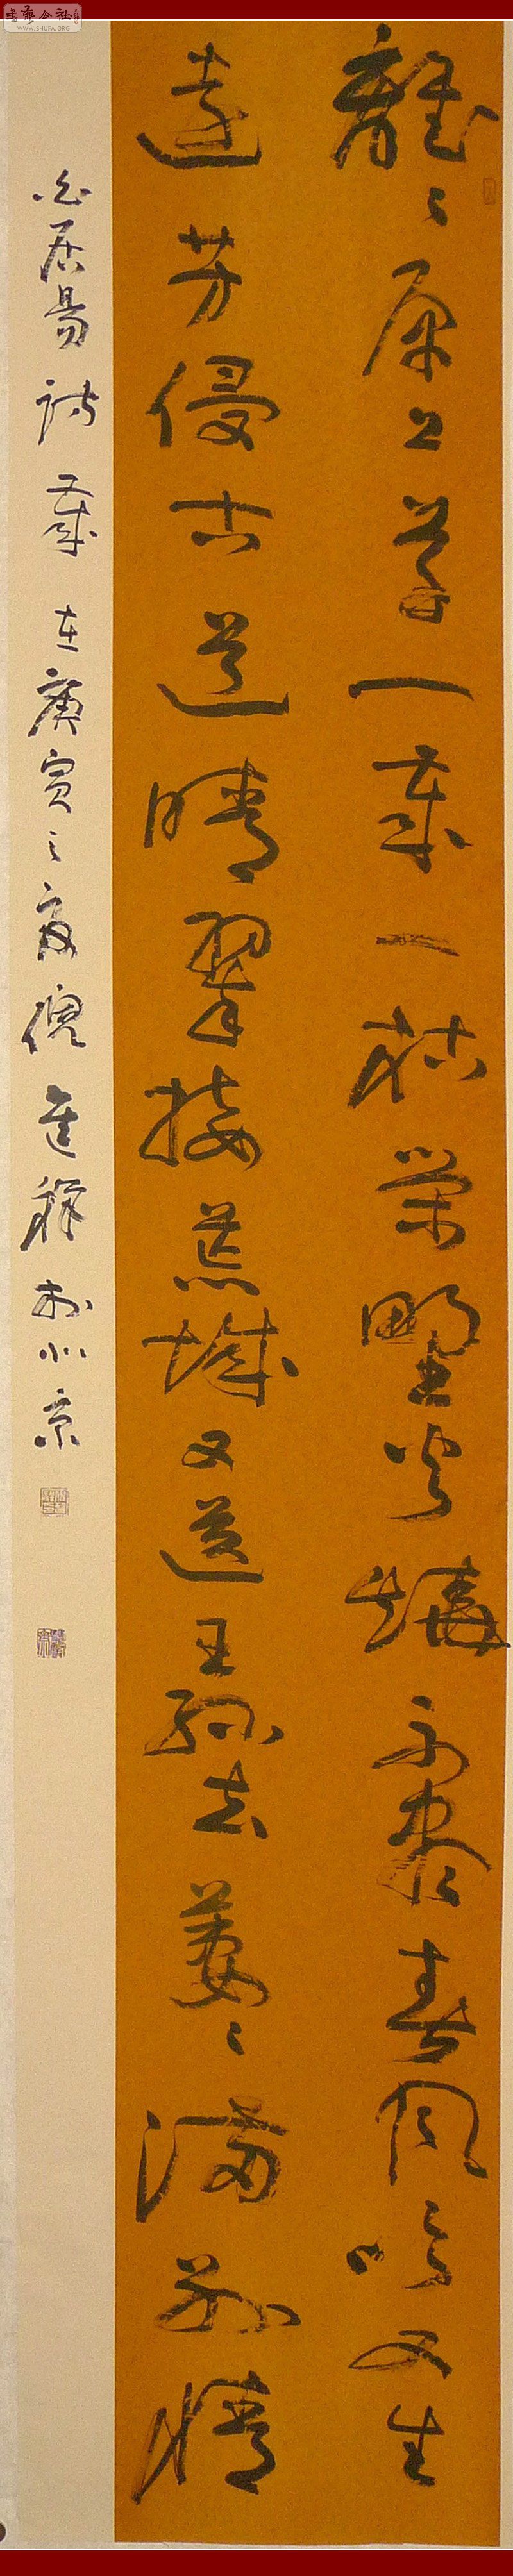 書藝公社
WWW.SHUFA.ORG
離〻原上草一歲一枯榮野火燒不盡春風吹又生
遠芳侵古道晴翠接荒城又送王孫去萋〻滿別情
白居易詩歲在庚寅之夏倪進祥於北京